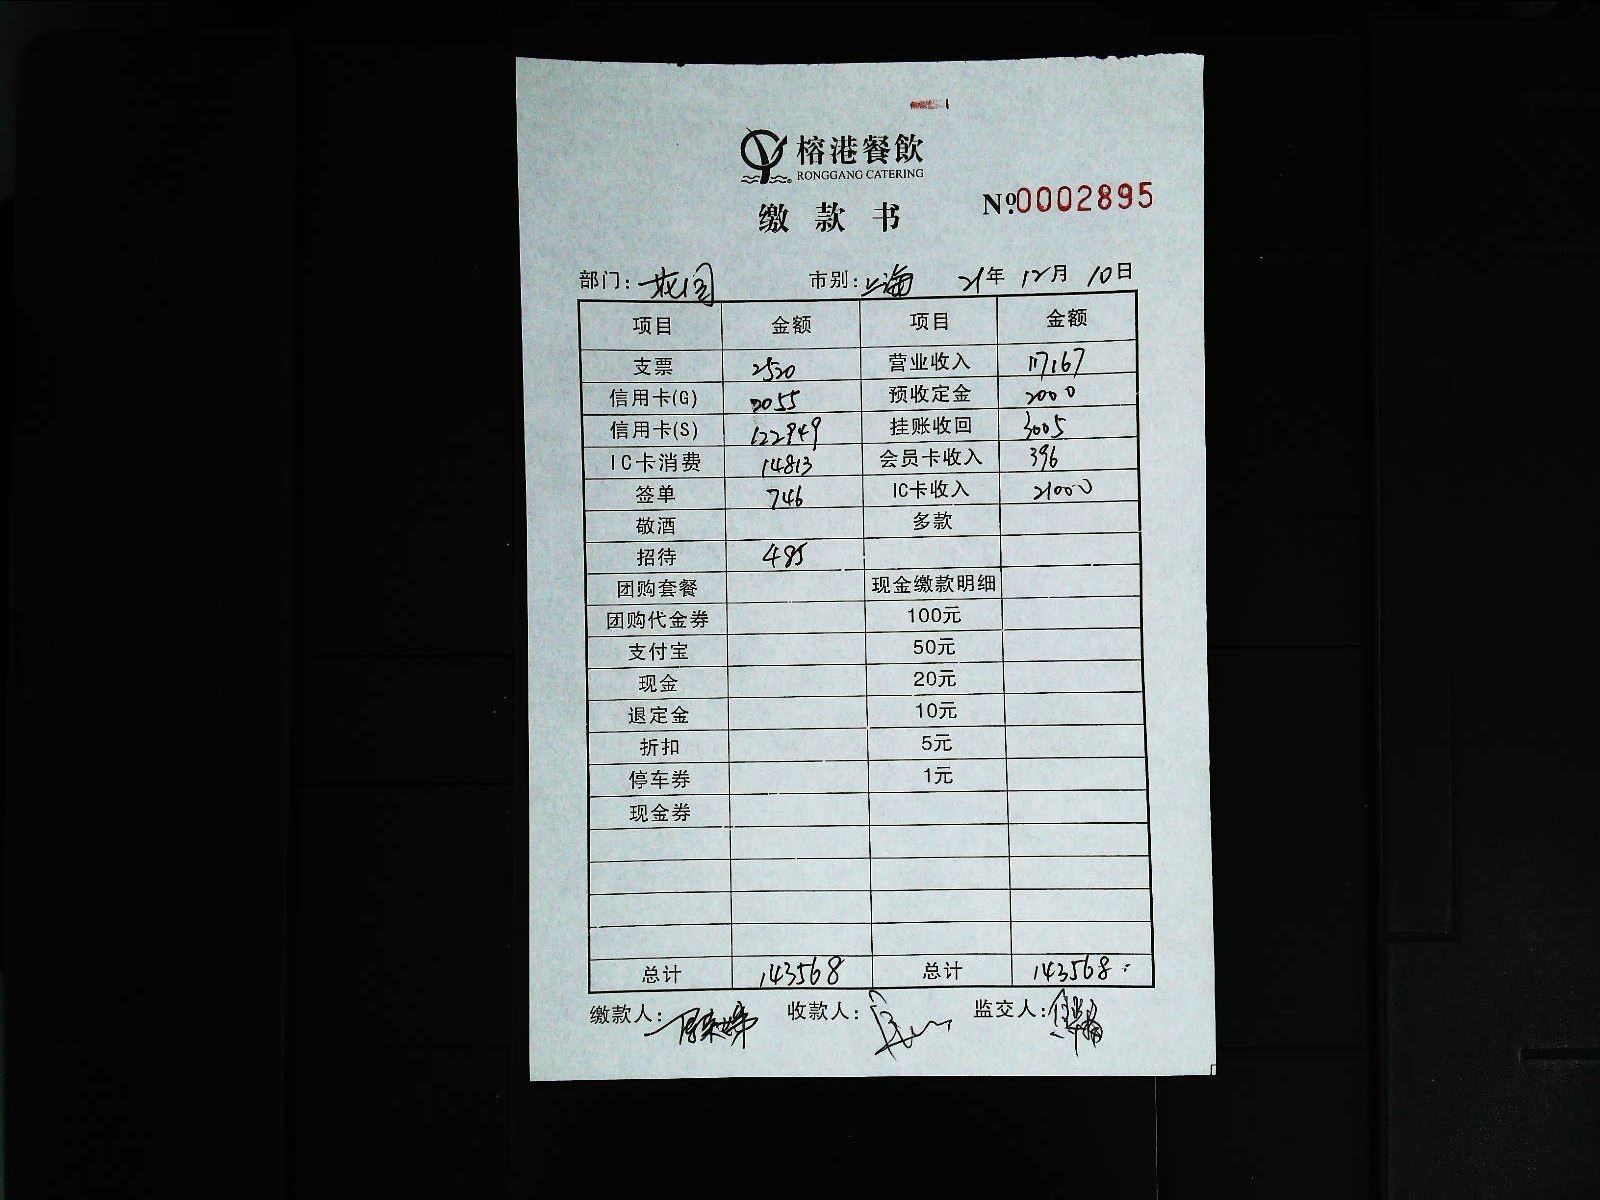 榕港餐飲
RONGGANG CATERING
缴款书
No.0002895
部门：花园 市别：上海 21年 12月 10日
项目 金额 项目 金额
支票 2520 营业收入 117167
信用卡(G) 2055 预收定金 2000
信用卡(S) 122949 挂账收回 3005
IC卡消费 14813 会员卡收入 396
签单 746 IC卡收入 21000
敬酒 多款
招待 485
团购套餐 现金缴款明细
团购代金券 100元
支付宝 50元
现金 20元
退定金 10元
折扣 5元
停车券 1元
现金券
总计 143568 总计 143568
缴款人： 收款人： 监交人：